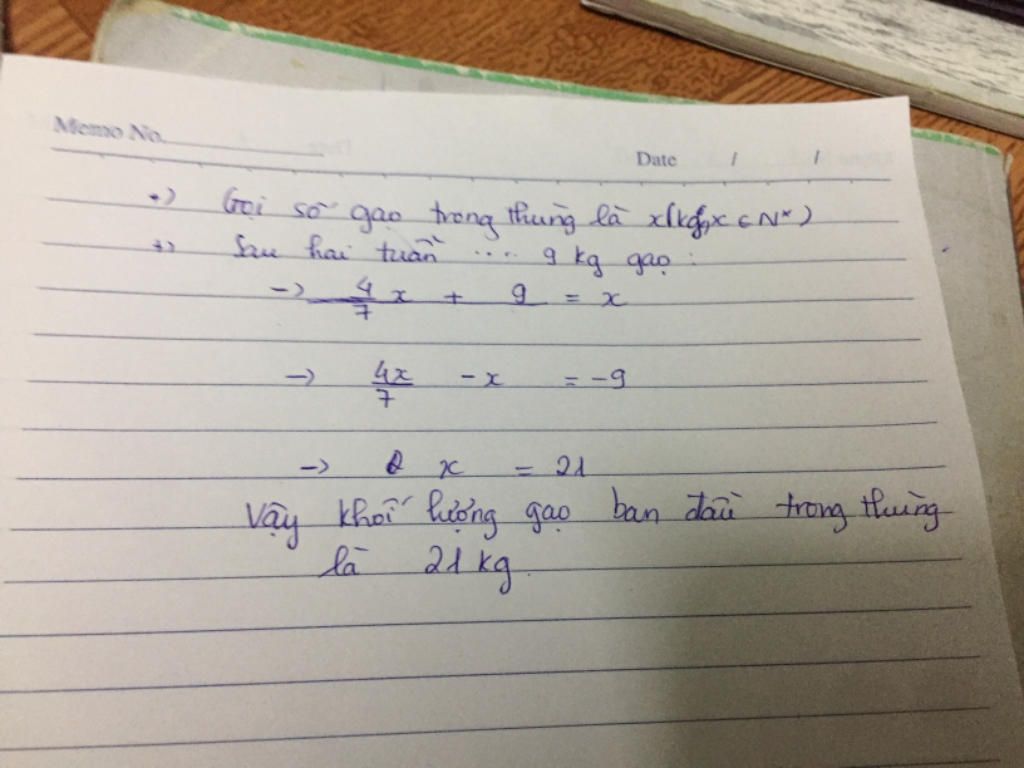 Memo No.
Date / /
+) Gọi số gạo trong thùng là x(kg, x ∈ N*)
+) Sau hai tuần .... 9 kg gạo:
-> 4/7 x + 9 = x
-> 4x/7 - x = -9
-> x = 21
Vậy khối lượng gạo ban đầu trong thùng
là 21 kg.